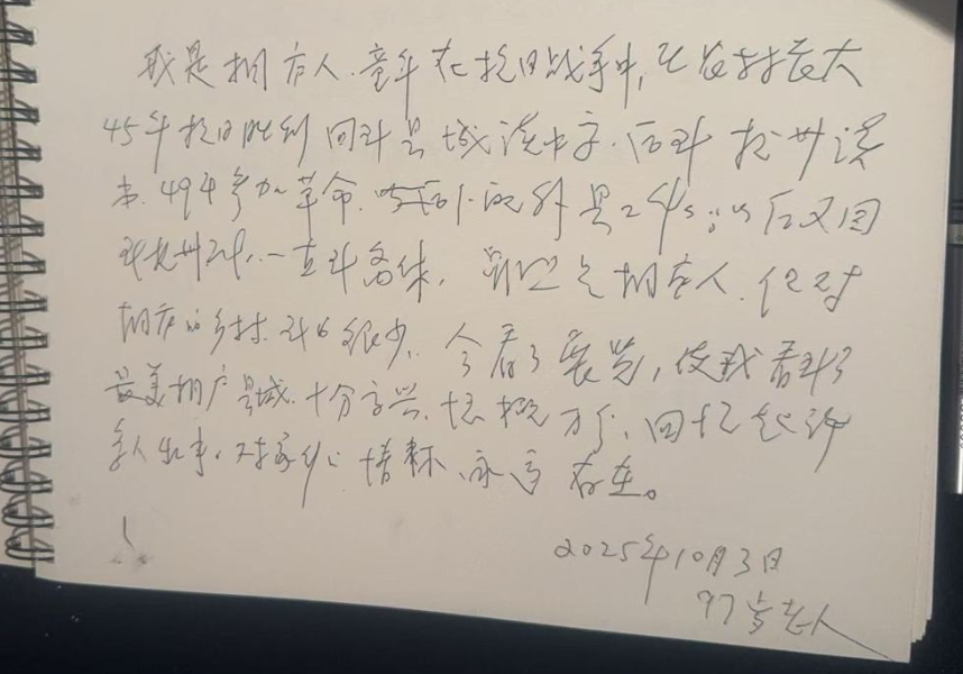 我是桐庐人.童年在抗日战争中,在农村长大
45年抗日胜利 回到县城读中学.后到杭州读
书.49年参加革命. 以后又回
到杭州 一直到离休, 虽然是桐庐人.但对
桐庐的乡村 很少. 今看了展览,使我看到了
最美桐庐县城.十分高兴. 感慨万千.回忆起许
多人和事.对家乡的情怀.永远存在。
2025年10月3日
97岁老人